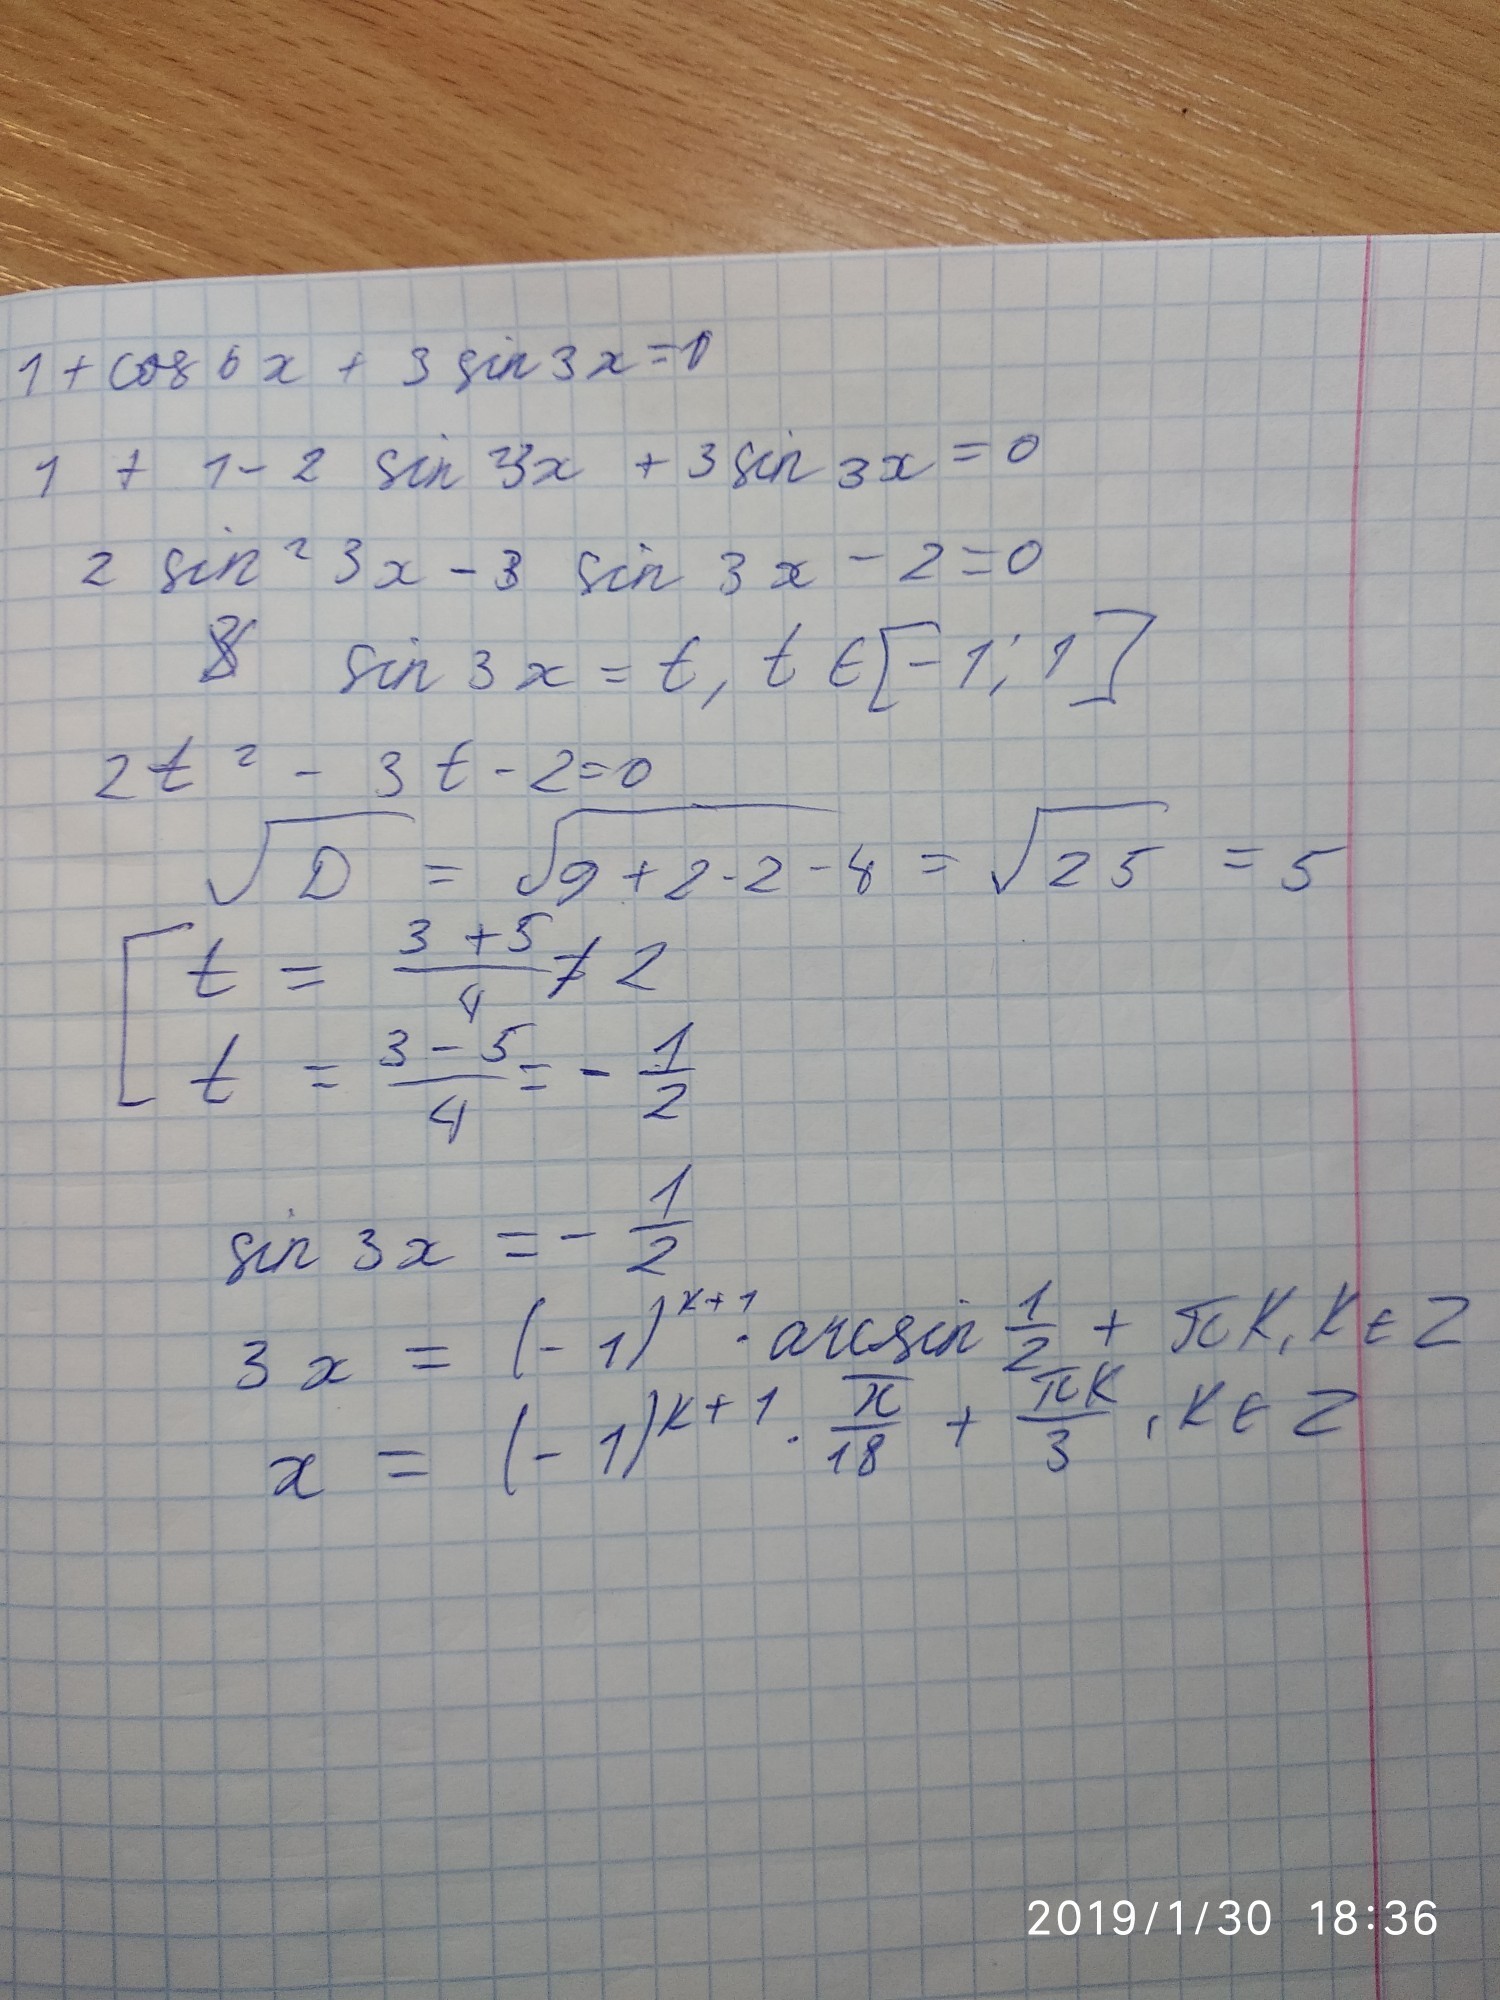 1 + cos 6x + 3 sin 3x = 0
1 + 1 - 2 sin² 3x + 3 sin 3x = 0
2 sin² 3x - 3 sin 3x - 2 = 0
sin 3x = t, t ∈ [-1; 1]
2t² - 3t - 2 = 0
√D = √9 + 2·2-4 = √25 = 5
[ t = (3 + 5)/4 ≠ 2
t = (3 - 5)/4 = - 1/2
sin 3x = - 1/2
3x = (-1)^(k+1) · arcsin 1/2 + πk, k ∈ Z
x = (-1)^(k+1) · π/18 + πk/3, k ∈ Z
2019/1/30 18:36